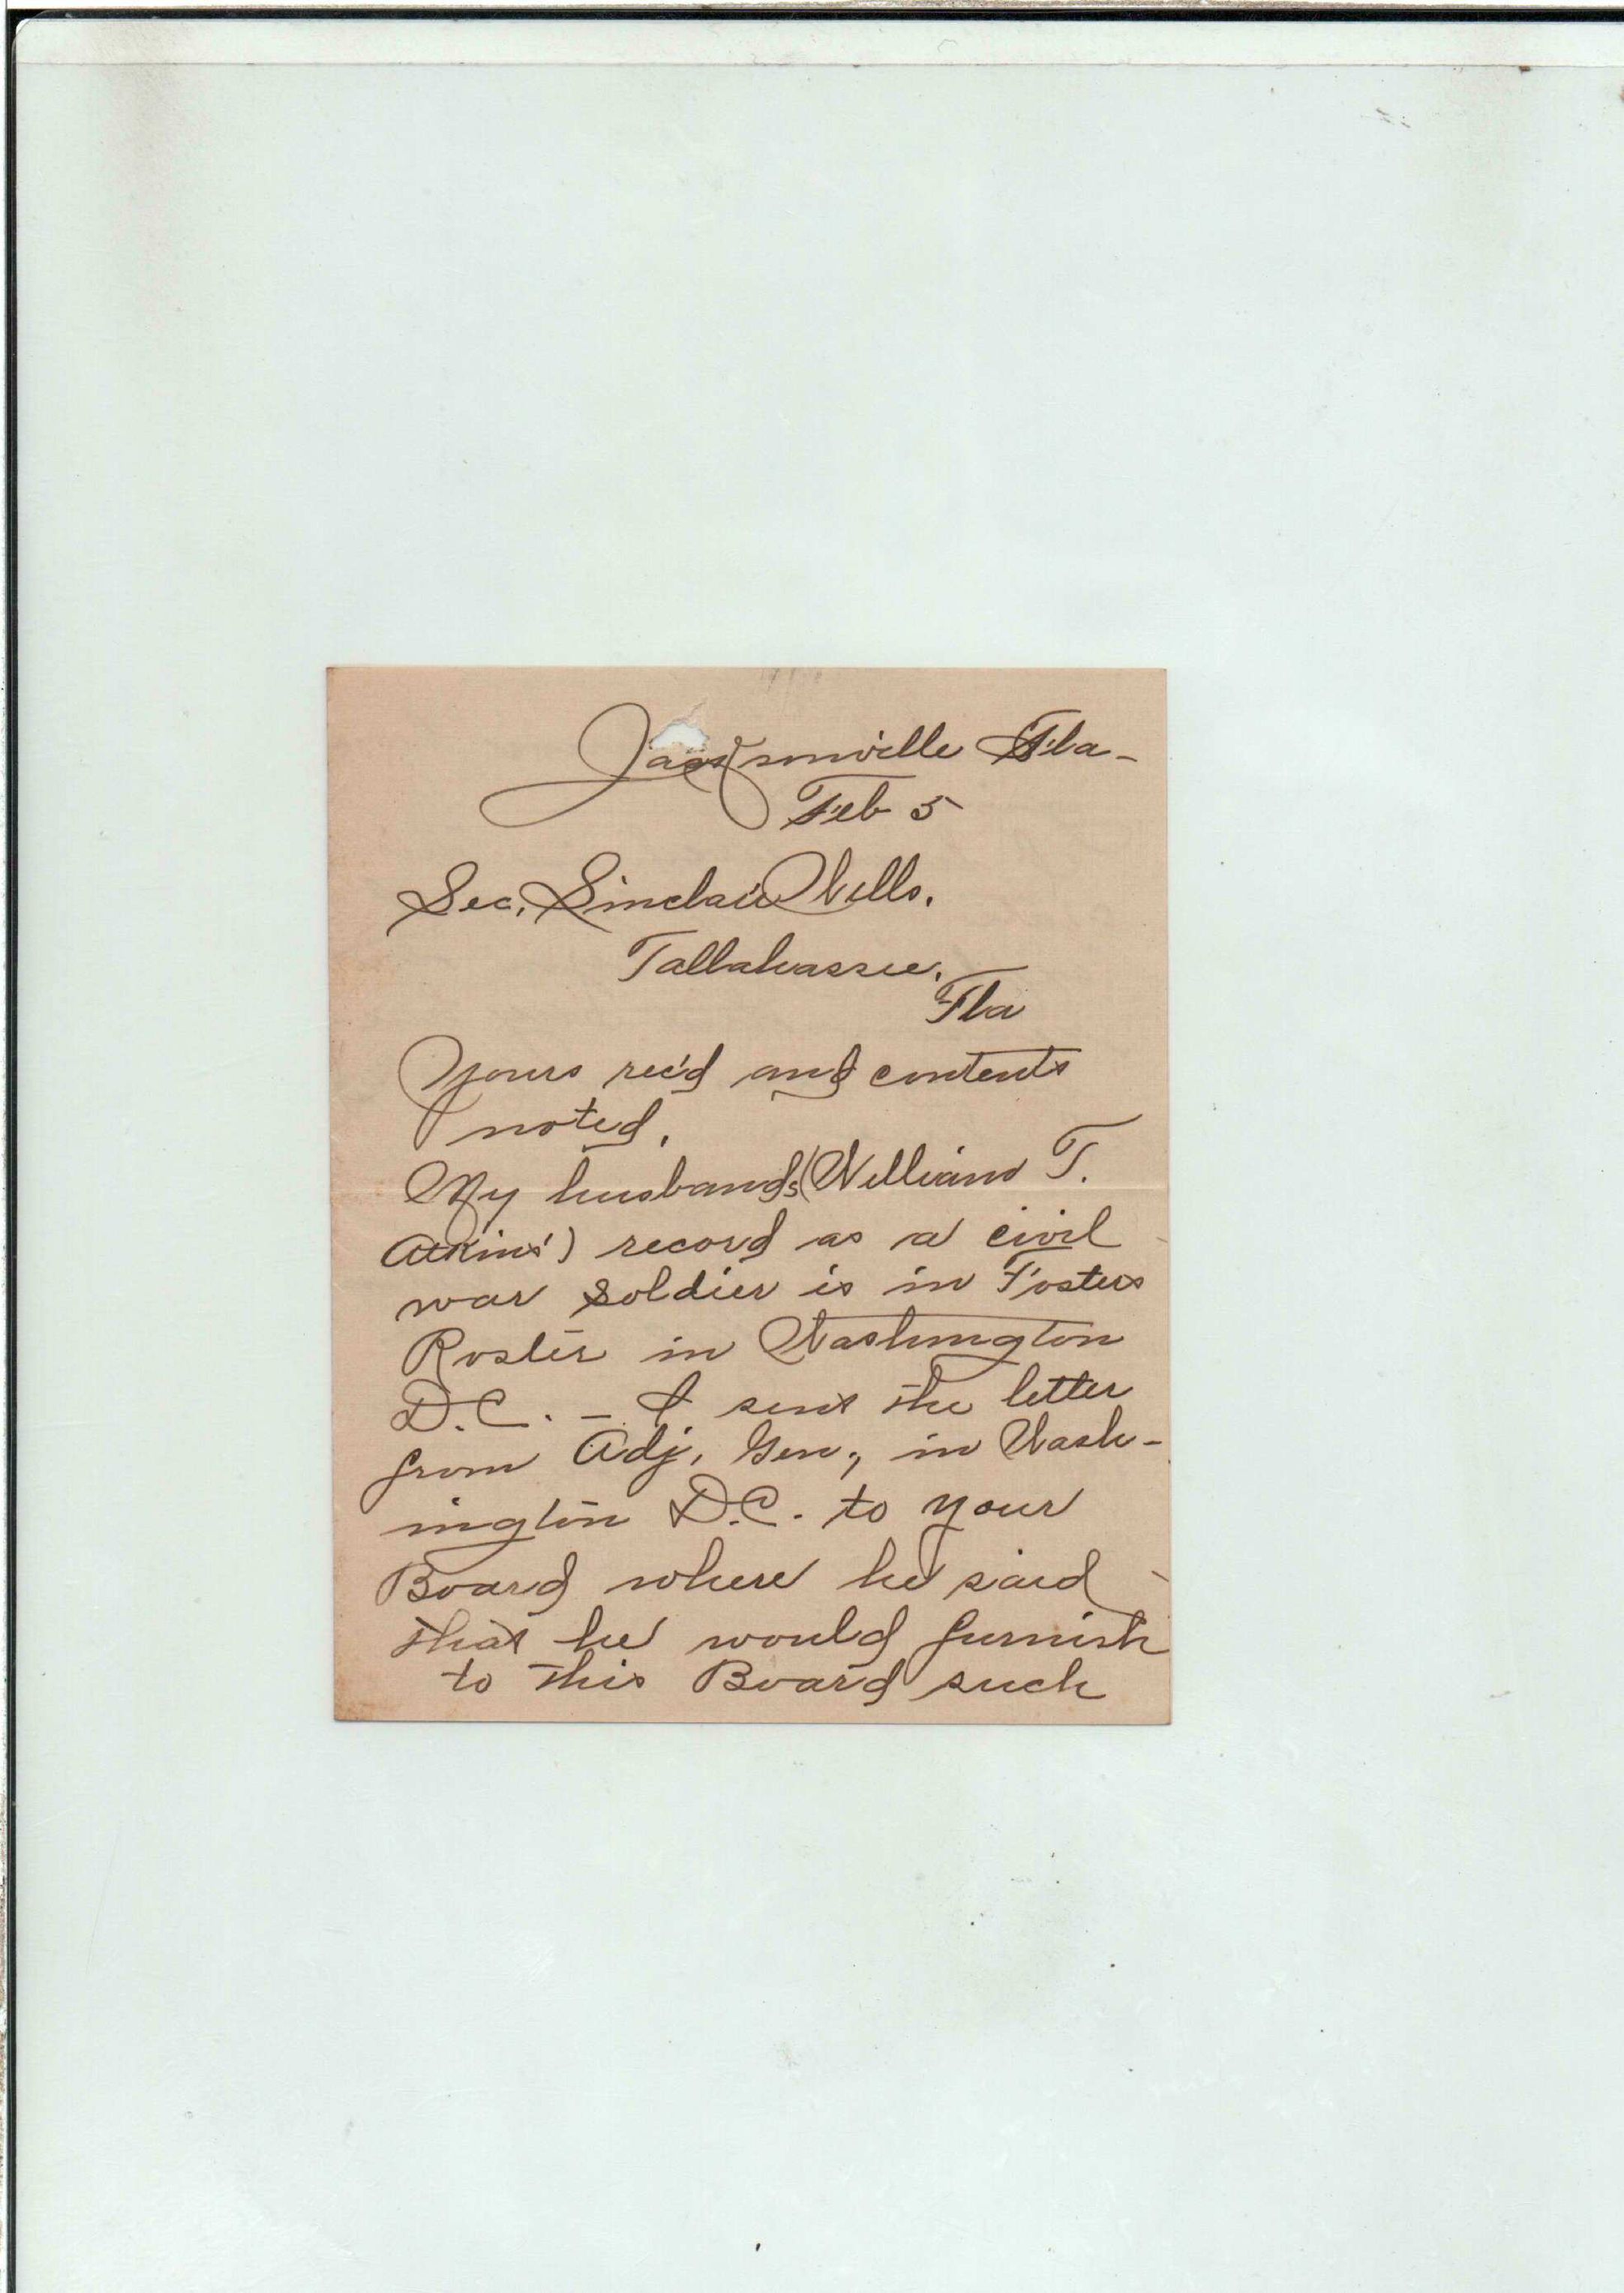 Jacksonville Fla-
Feb 5
Sec, Sinclair Wells.
Tallahassee,
Fla
Yours rec'd and contents
noted.
My husbands (William T.
Atkins') record as a civil
war soldier is in Fosters
Roster in Washington
D.C. - I sent the letter
from Adj, Gen., in Wash-
ington D.C. to your
Board where he said
that he would furnish
to this Board such